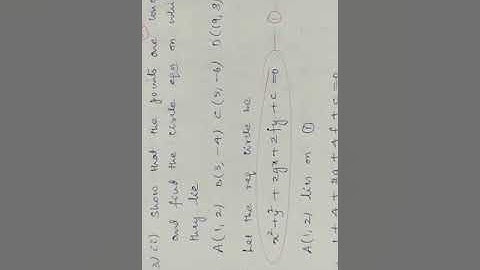 3) (i) Show that the points are conc
and find the circle eqn on whi
they lie
A(1, 2) B(3, -4) C(5, -6) D(19, 8)
Let the req circle be
x² + y² + 2gx + 2fy + c = 0 — ①
A(1, 2) lies on ①
1 + 4 + 2g + 4f + c = 0